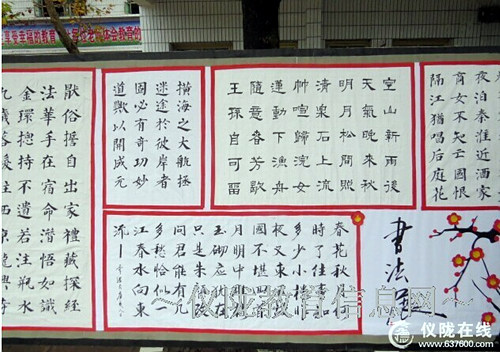 享受幸福的教育
体会教育的
夜泊秦淮近酒家
商女不知亡國恨
隔江猶唱后庭花
空山新雨後
天氣晚來秋
明月松間照
清泉石上流
竹喧歸浣女
蓮動下漁舟
隨意春芳歇
王孫自可留
橫海之大航拯
迷途於彼岸者
固必有奇功妙
道歟以開成元
出家禮藏探經
法華手在宿命潛悟如識
金環摠持
春花秋月何
時了往事知
多少小樓昨
夜又東風故
國不堪回首
月明中雕欄
玉砌應猶在
只是朱顏改
問君能有幾
多愁恰似一
江春水向東
流
書法展
~仪陇教育信息网~
仪陇在线
www.637600.com